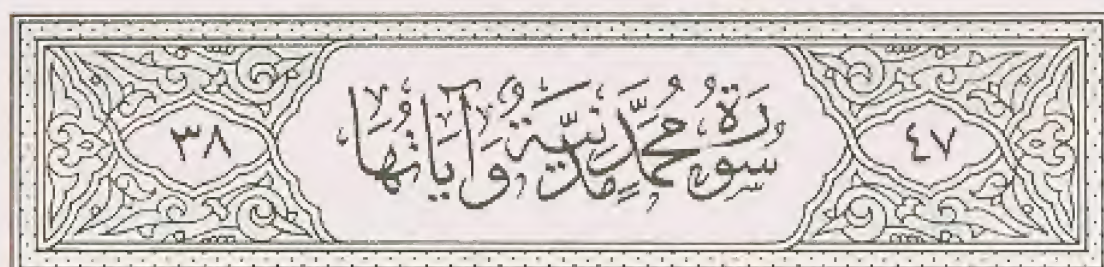 ٤٧ سُورَةُ مُحَمَّدٍ مَدَنِيَّةٌ وَآيَاتُهَا ٣٨